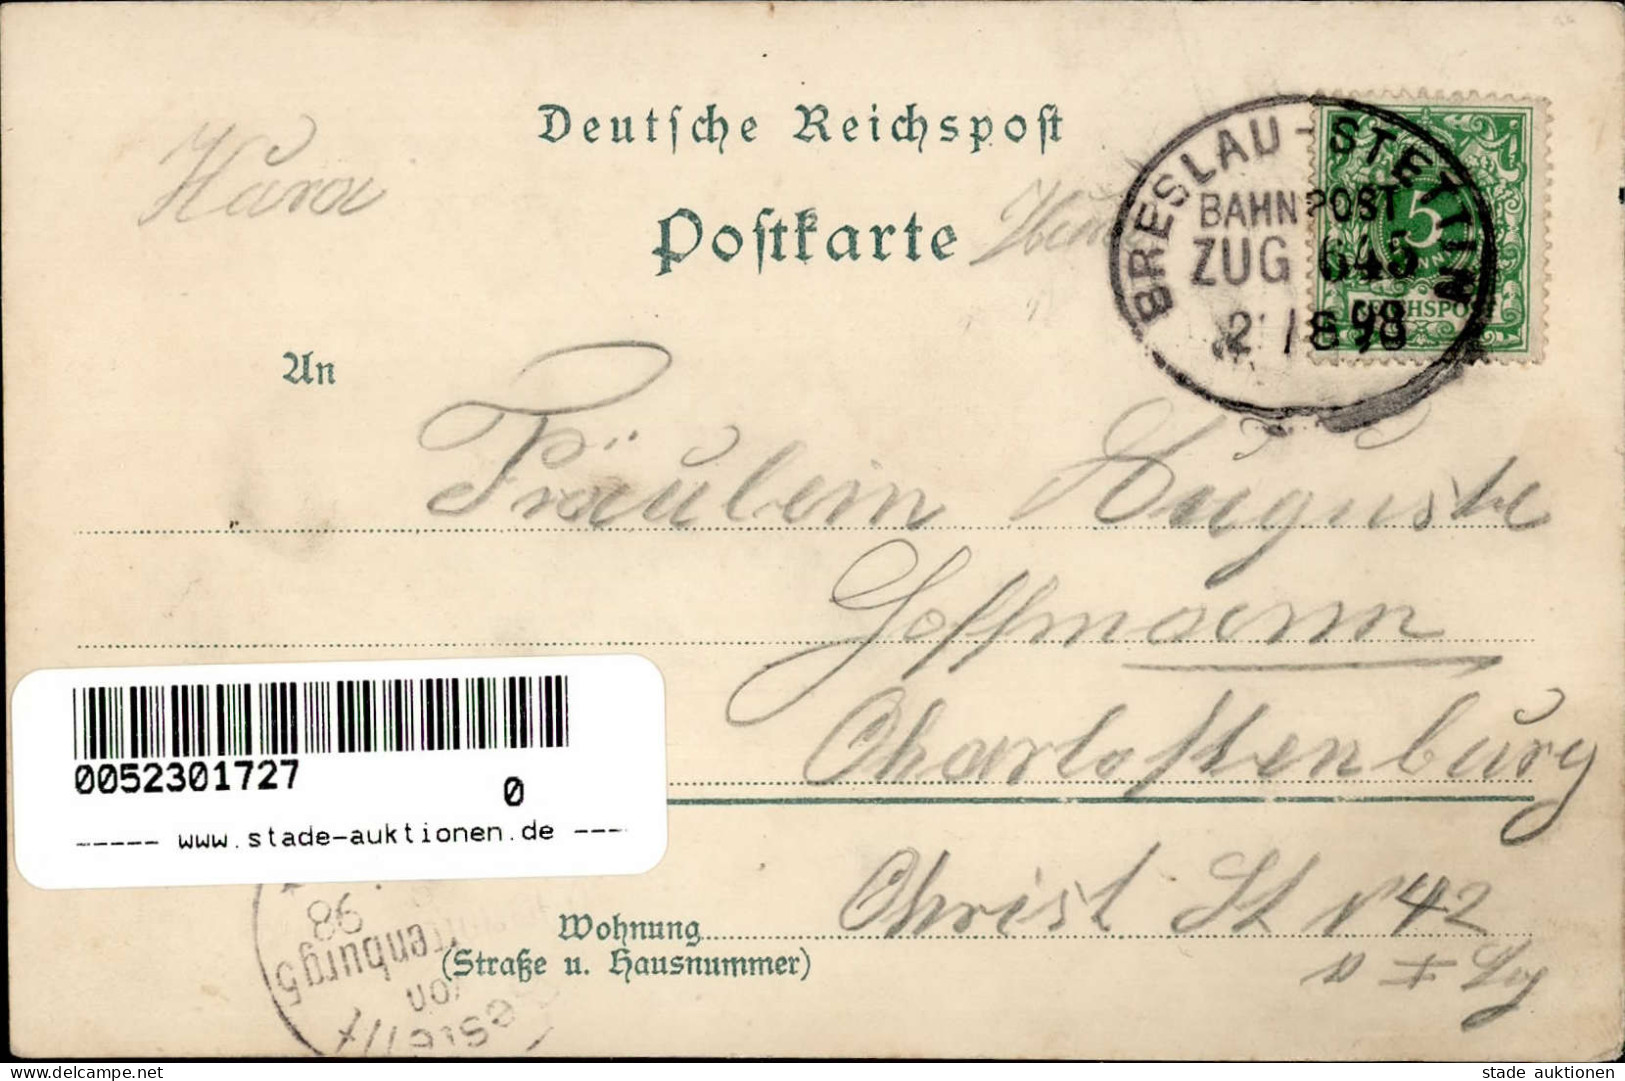 Deutsche Reichspost
Postkarte
BRESLAU-STETTIN
BAHNPOST
ZUG 645
2 / 8 98
5
REICHSPOST
An
Fräulein Auguste
Hoffmann
Charlottenburg
Christ St N 42
Wohnung
(Straße u. Hausnummer)
Bestellt
von
Charlottenburg 5
98
0052301727
0
----- www.stade-auktionen.de ----
delcampe.net
stade auktionen